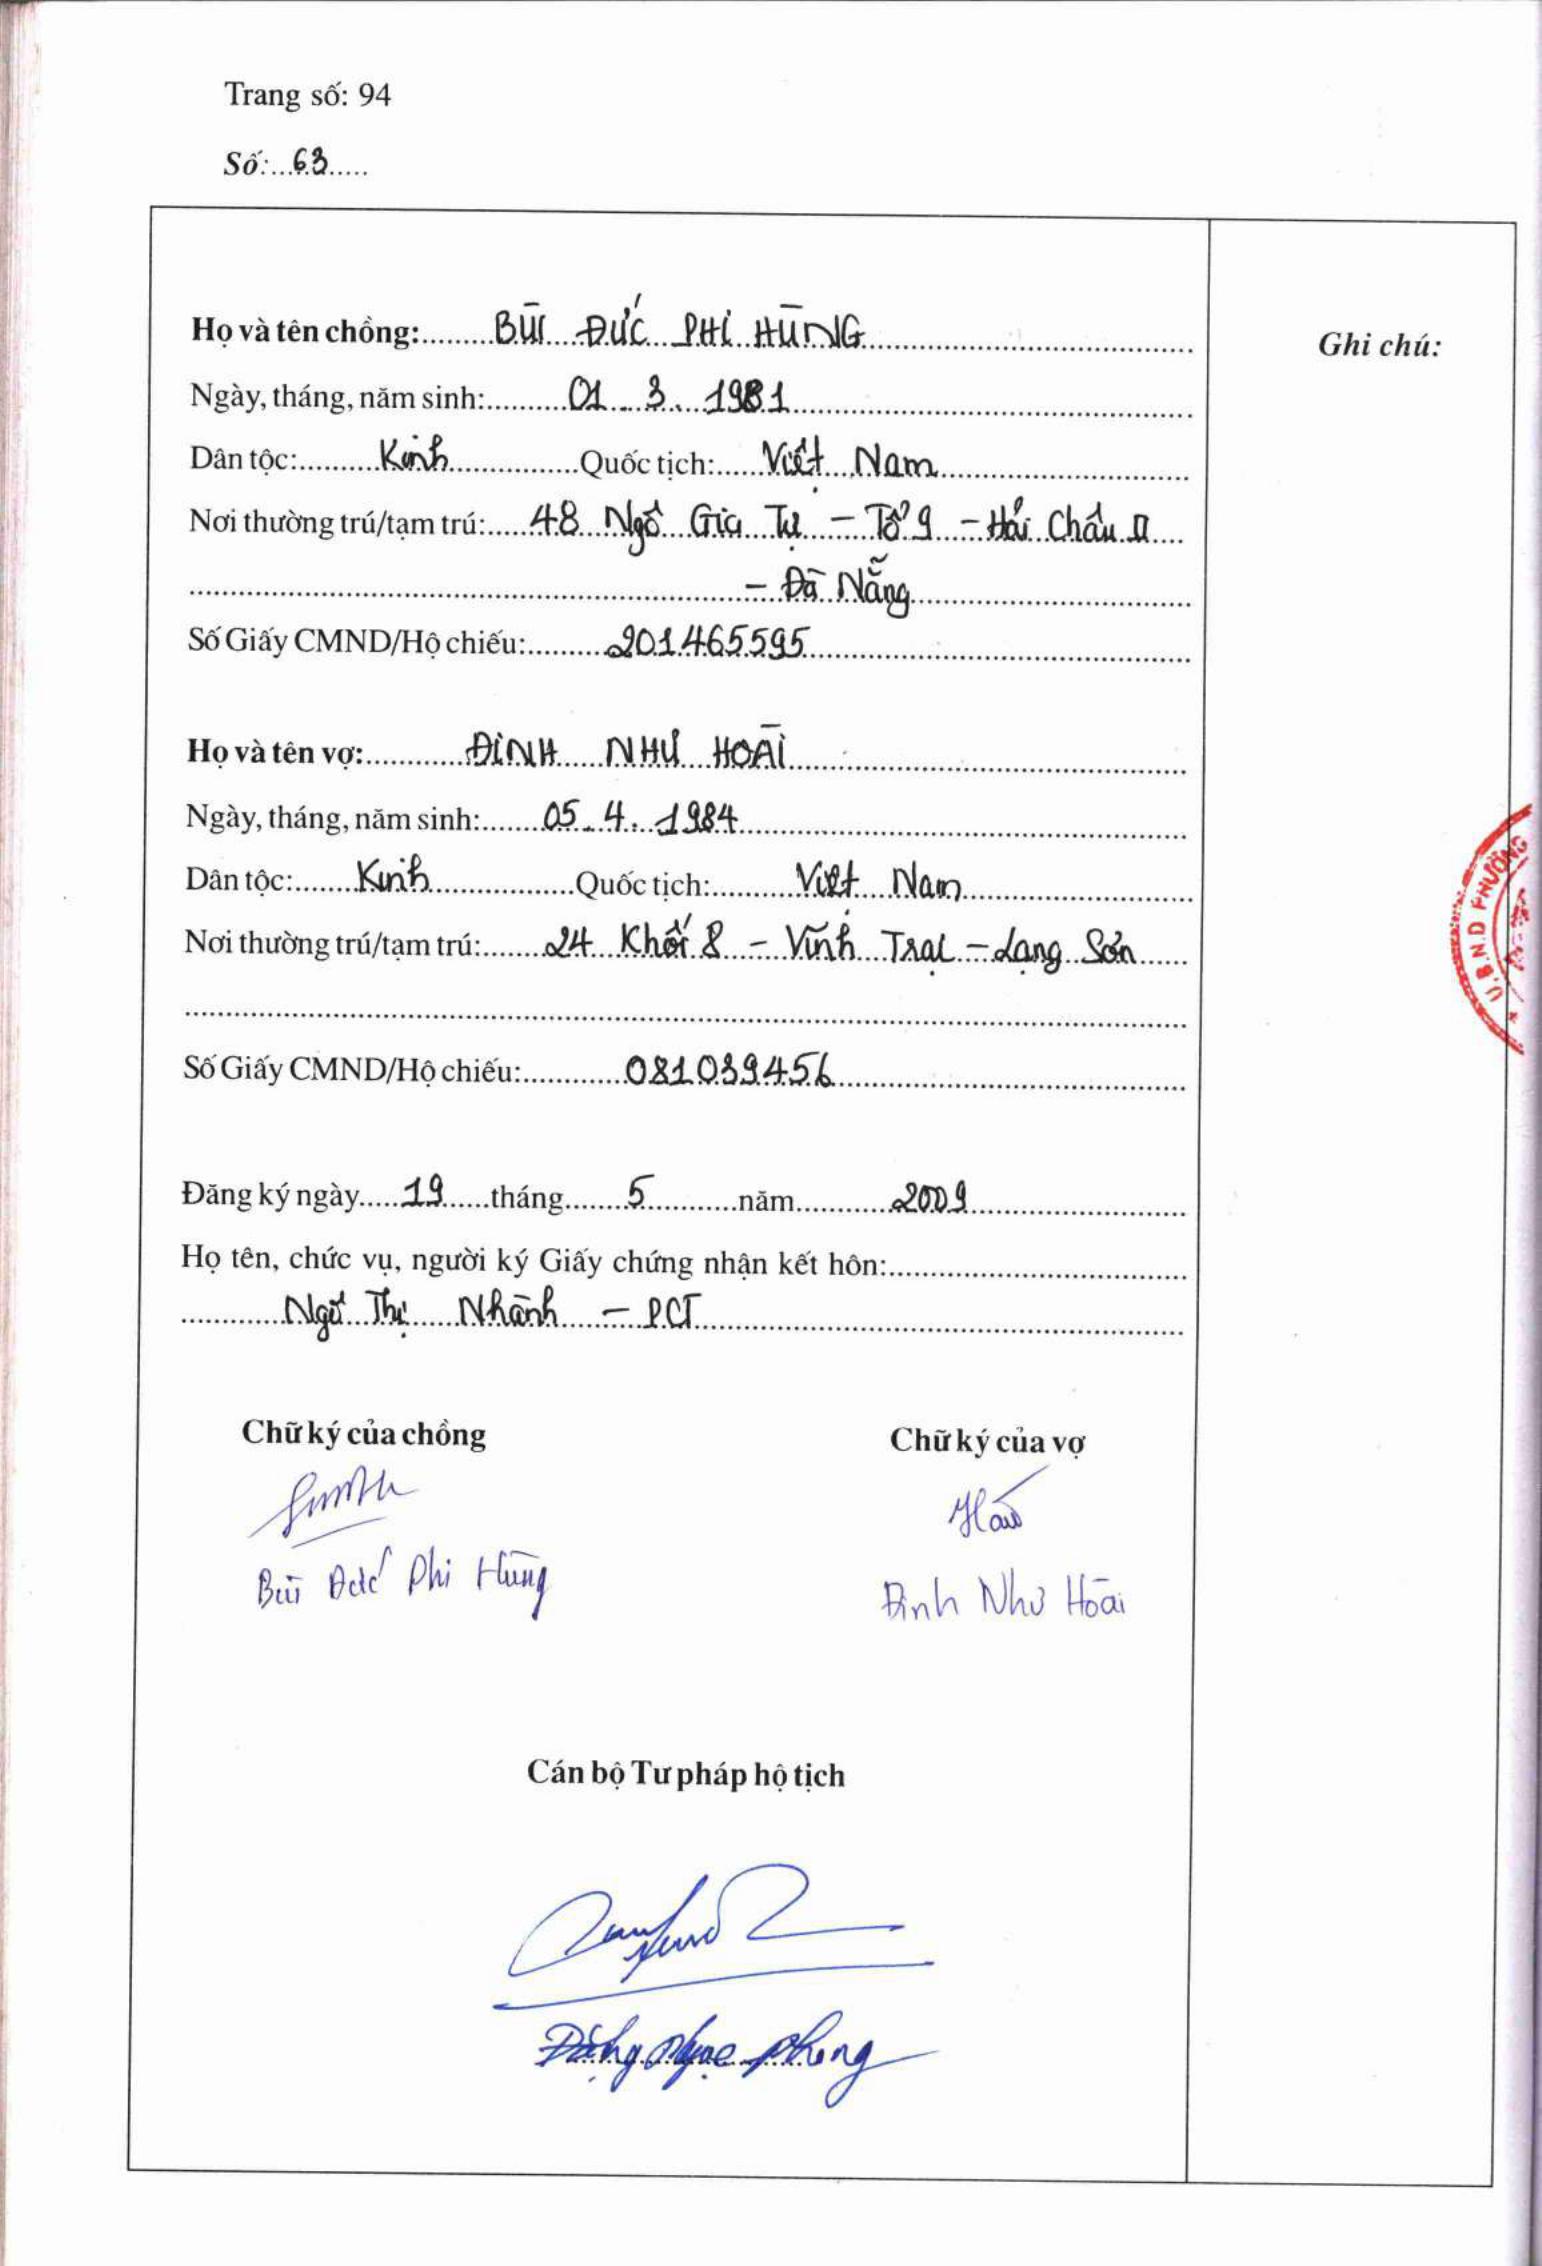 Trang số: 94
Số: 63
Họ và tên chồng: BÙI ĐỨC PHI HÙNG
Ghi chú:
Ngày, tháng, năm sinh: 01. 3. 1981
Dân tộc: Kinh Quốc tịch: Việt Nam
Nơi thường trú/tạm trú: 48 Ngô Gia Tự - Tổ 9 - Hải Châu II
- Đà Nẵng
Số Giấy CMND/Hộ chiếu: 201465595
Họ và tên vợ: ĐINH NHƯ HOÀI
Ngày, tháng, năm sinh: 05. 4. 1984
Dân tộc: Kinh Quốc tịch: Việt Nam
Nơi thường trú/tạm trú: 24 Khối 8 - Vĩnh Trại - Lạng Sơn
Số Giấy CMND/Hộ chiếu: 081039456
U.B.N.D PHƯỜNG
Đăng ký ngày 19 tháng 5 năm 2009
Họ tên, chức vụ, người ký Giấy chứng nhận kết hôn:
Ngô Thị Nhành - PCT
Chữ ký của chồng Chữ ký của vợ
Bùi Đức Phi Hùng Đinh Như Hoài
Cán bộ Tư pháp hộ tịch
Đặng Ngọc Phong